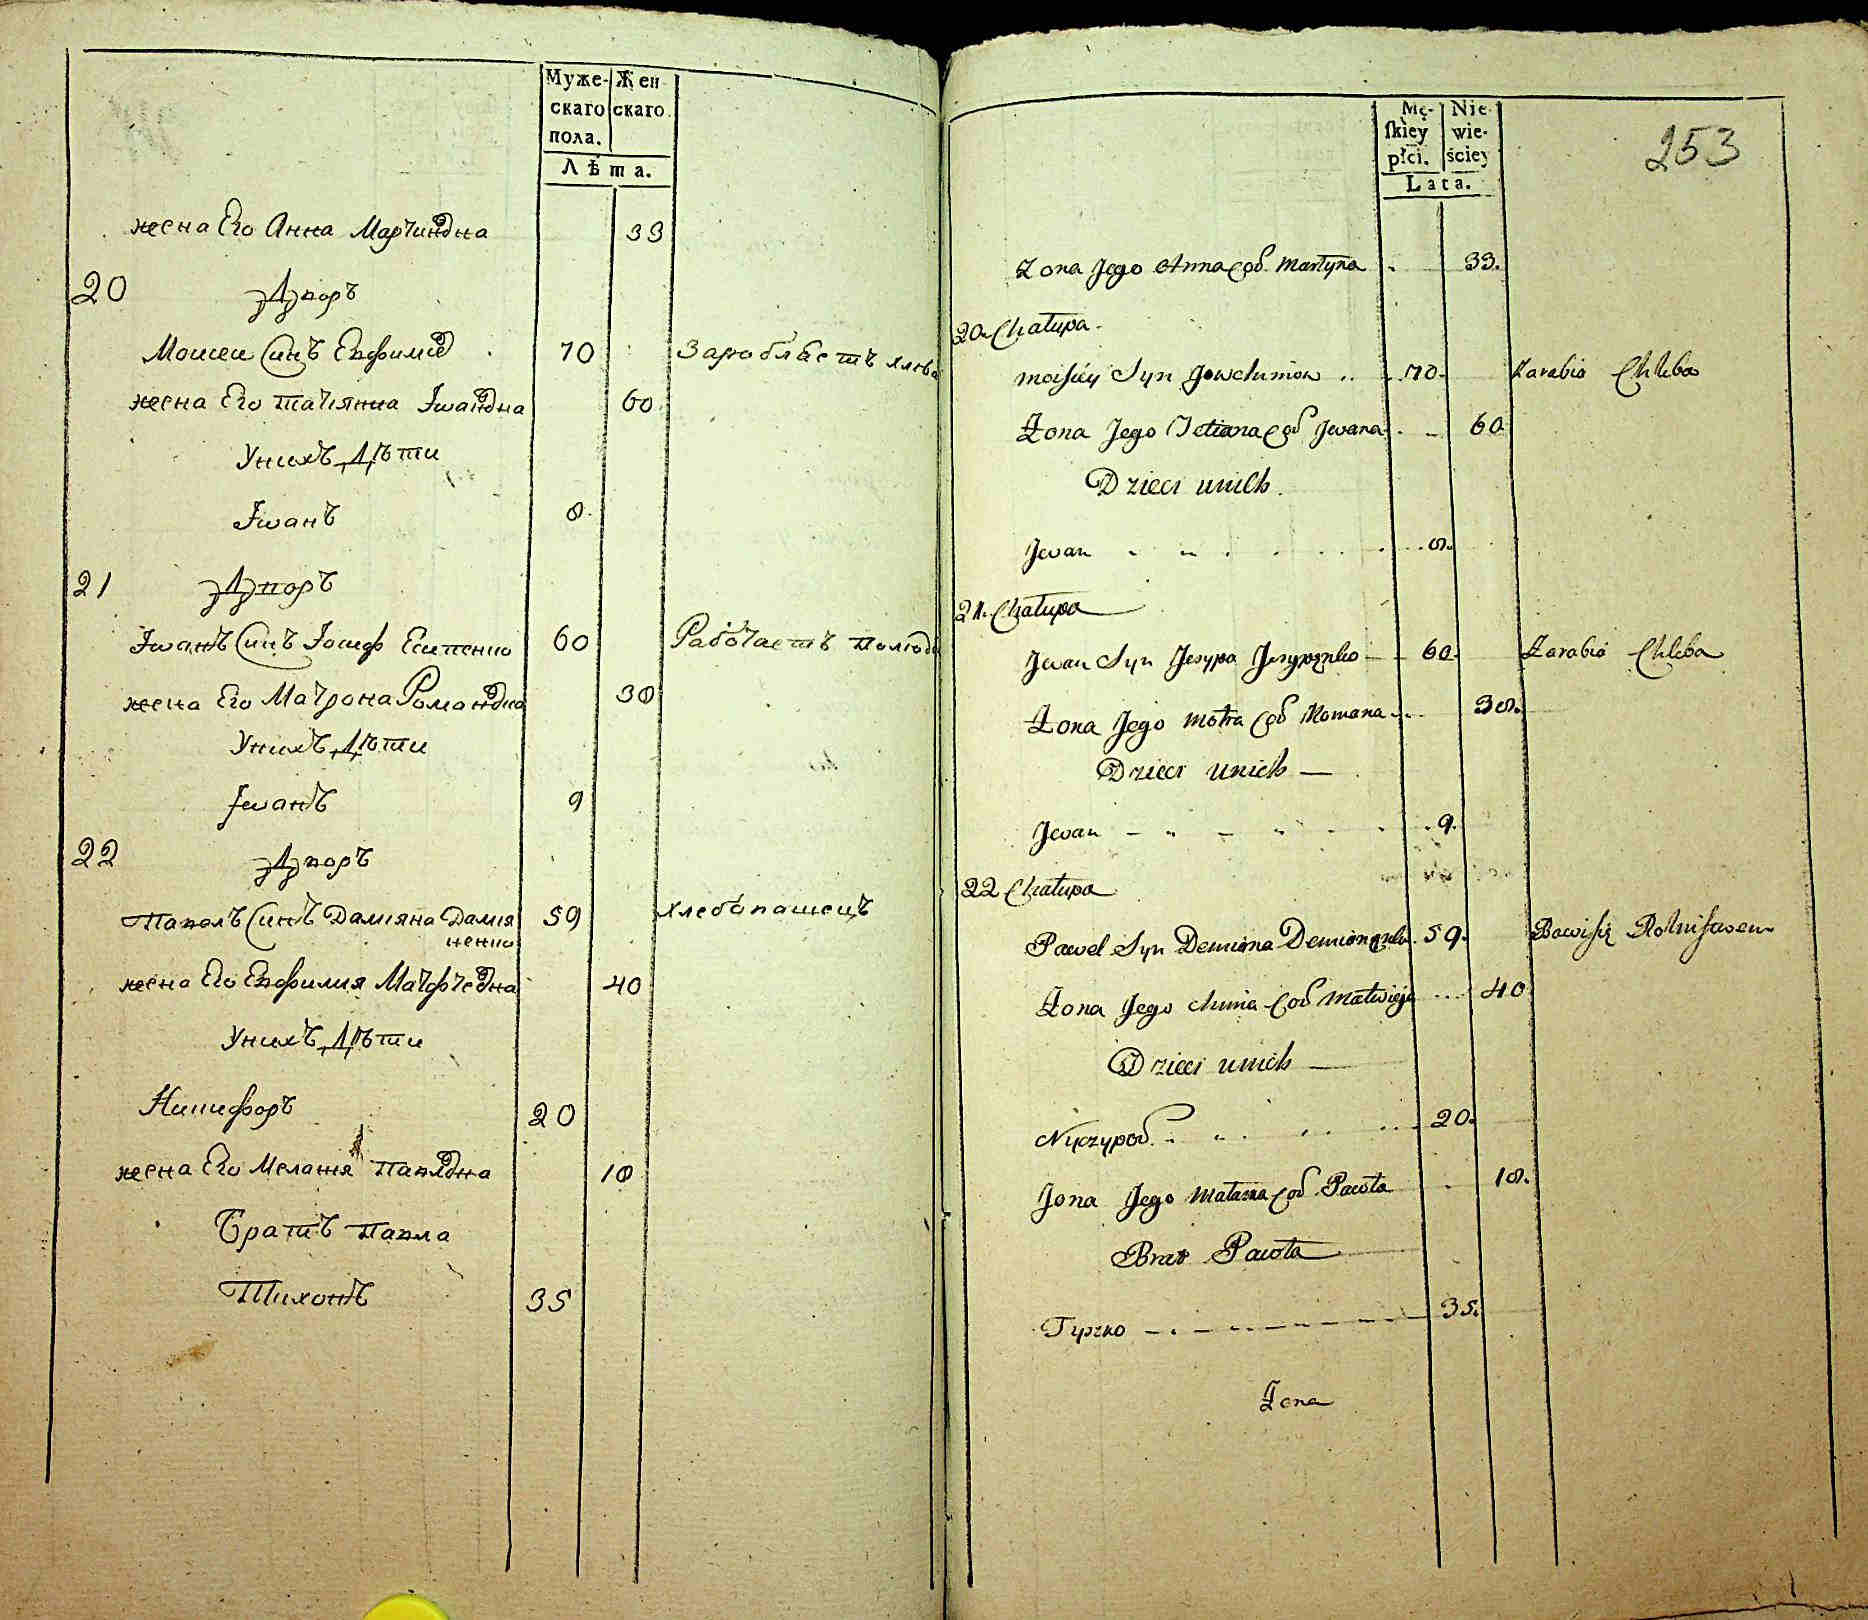 Муже-
скаго
пола.
Жен
скаго
Лѣта.
жена Его Анна Мартиновна 33
20 Дворъ
Мошеи Синъ Евфимов 70 Заробляетъ хлеба
жена Его татиянна Iвановна 60
Унихъ Дѣти
Iванъ 8
21 Дворъ
Iванъ Синъ Iосиф Есипенко 60 Работаетъ
жена Его Матрона Романовна 38
Унихъ Дѣти
Iванъ 9
22 Дворъ
Павелъ Синъ Дамияна Дамия 59 хлебопашецъ
ненко
жена Его Евфимия Матфѣевна 40
Унихъ Дѣти
Никифоръ 20
жена Его Мелания павловна 18
Братъ павла
Тихонъ 35
Mę-
skiey
płci.
Nie
wie-
ściey
Lata.
253
Żona Jego Anna Cod. Martyna 33.
20. Chatupa.
moisiey Syn Jowchimow 70. Zarabia Chleba
Żona Jego Tetiana Cod Jwana 60
Dzieci unich.
Jwan 8.
21. Chatupa
Jwan Syn Jesypa Jesypęnko 60. Zarabia Chleba
Żona Jego Motra Cod Romana 38.
Dzieci unich
Jwan 9.
22 Chatupa
Pawel Syn Demiana Demianęnko 59. Bawisię Rolnistwem
Żona Jego Chima Cod Matwieja 40
Dzieci unich
Nyczypod 20.
Żona Jego Malana Cod Pawła 18.
Brat Pawła
Tyszko 35.
Żona